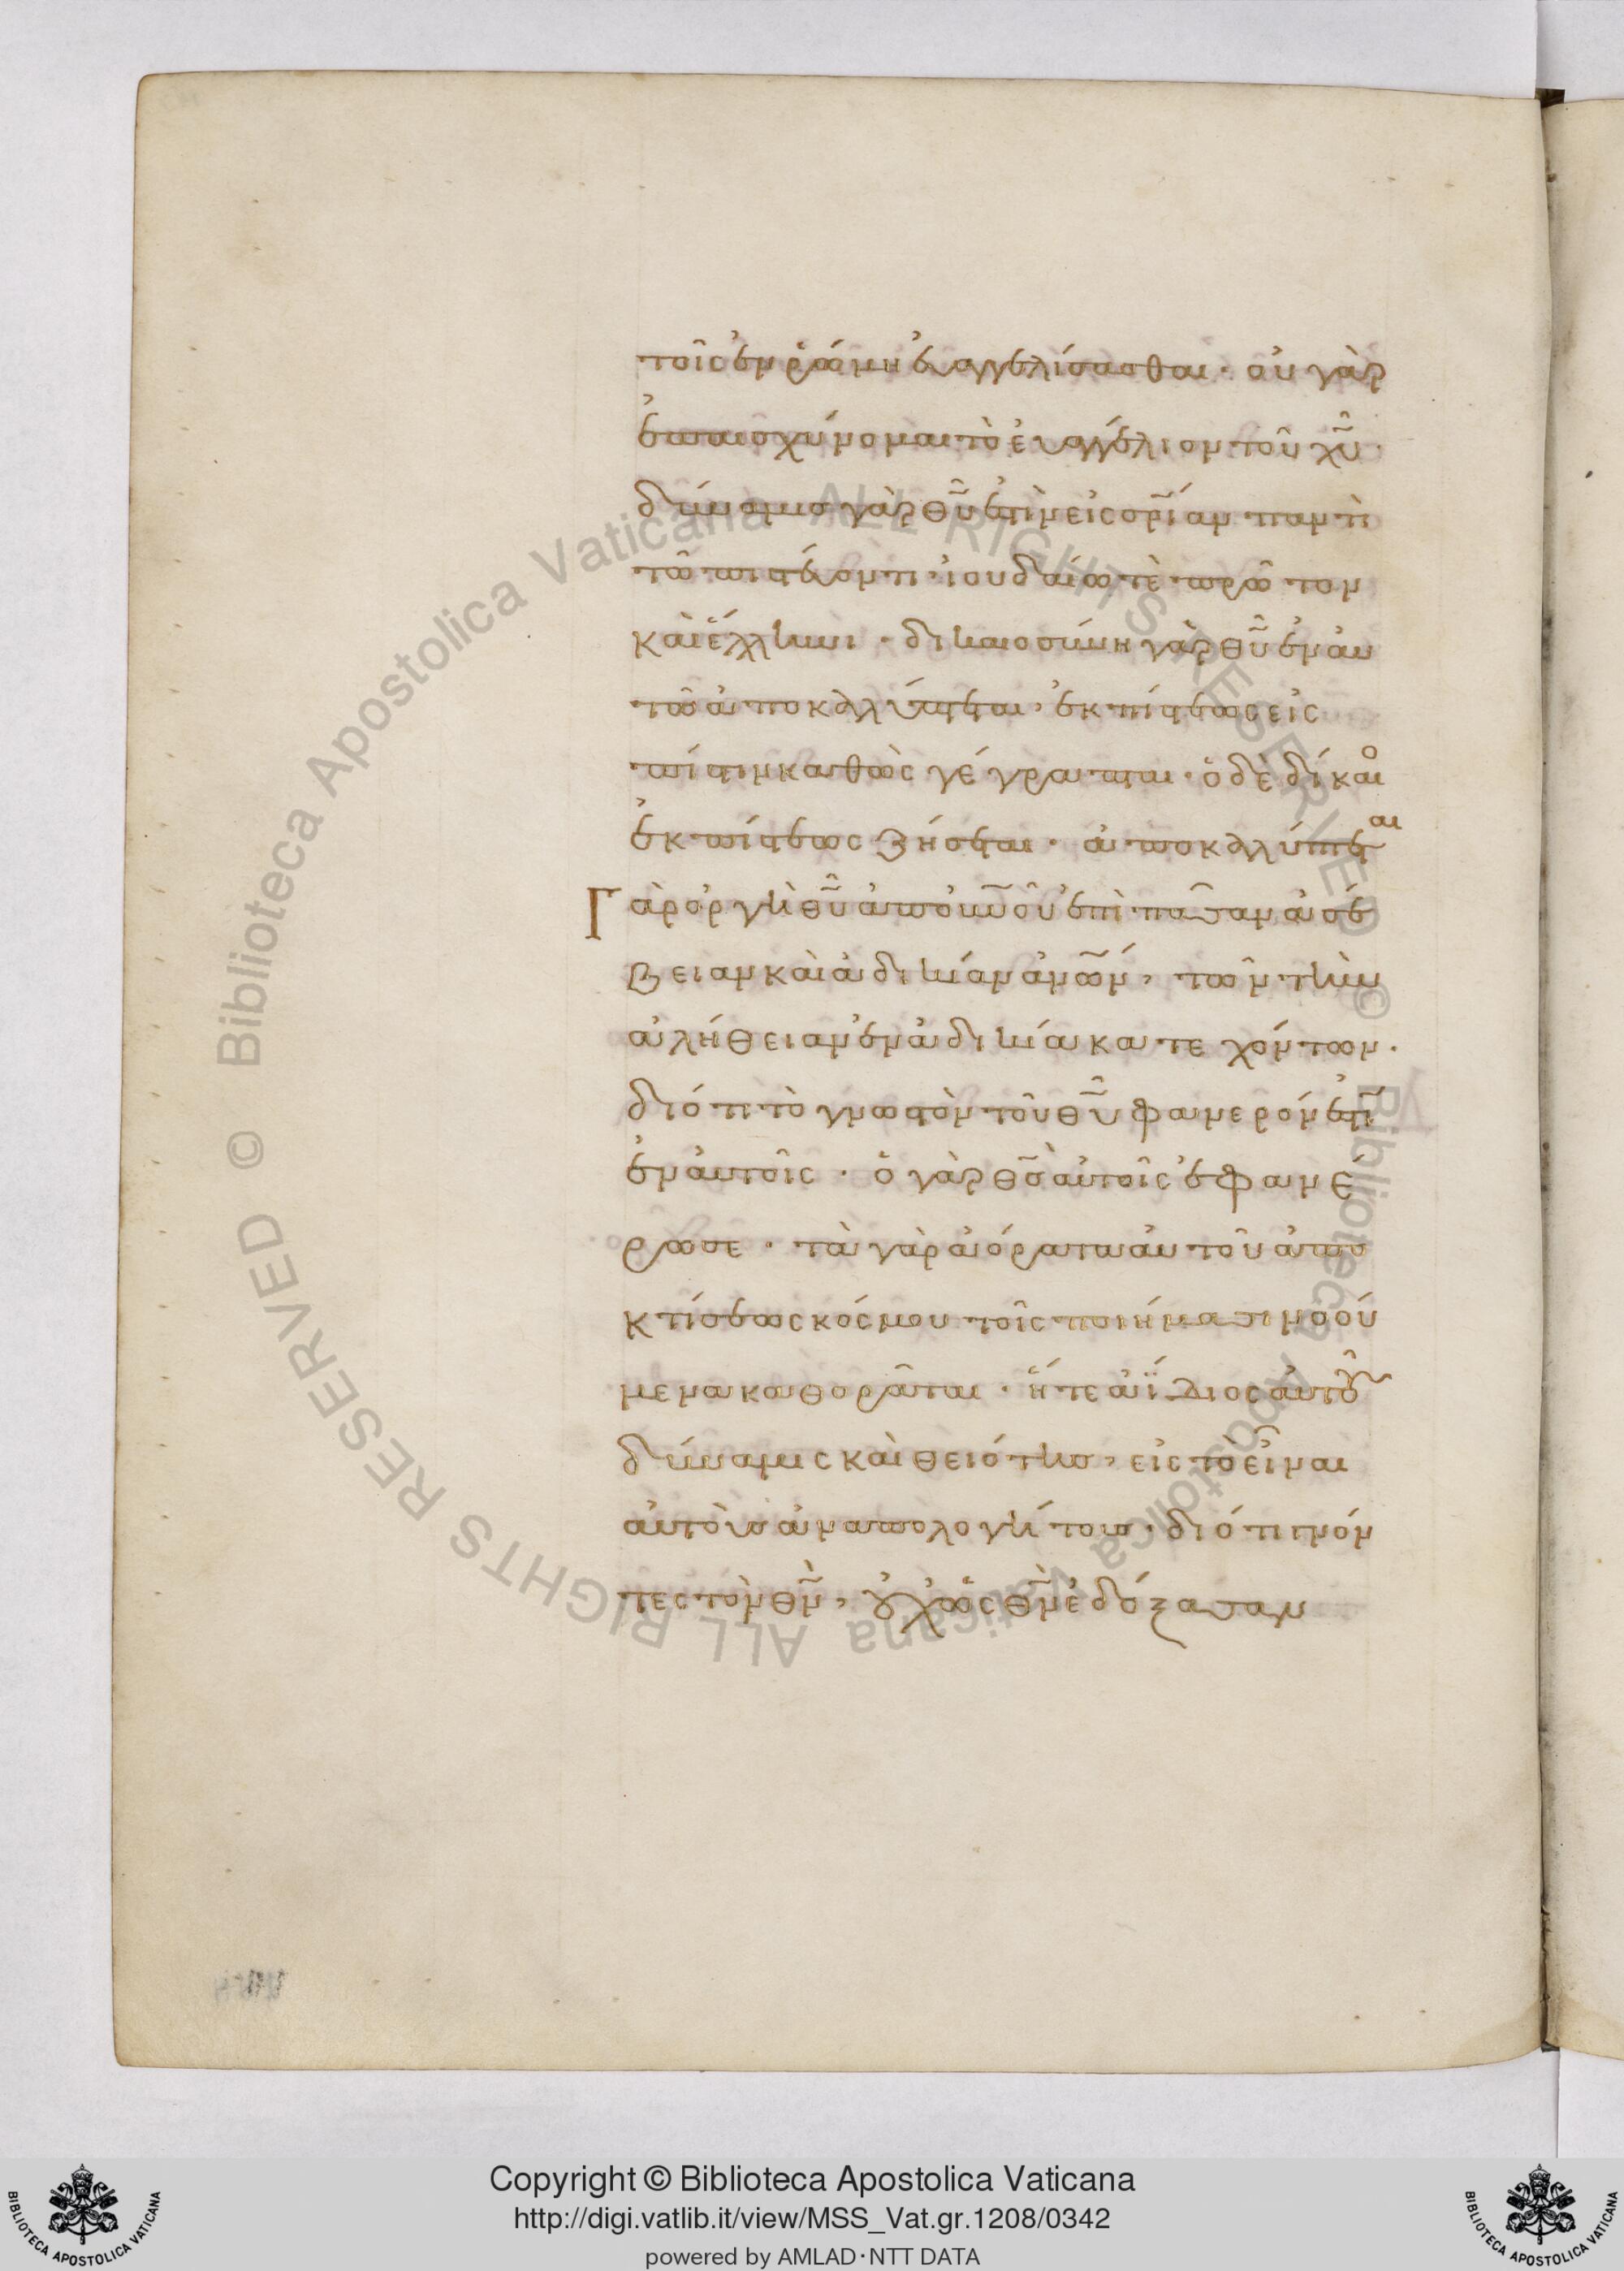 τοῖς ἐν ῥώμη ἐυαγγελίσασθαι · οὐ γὰρ
ἐπαισχύνομαι τὸ ἐυαγγέλιον τοῦ χῦ ·
δύναμις γὰρ θῦ ἐστὶν εἰς σρίαν παντὶ
τῶ πιστεύοντι, ἰουδαίω τὲ πρῶτον
καὶ ἕλληνι · δικαιοσύνη γὰρ θῦ ἐν ἀυ
τῶ ἀποκαλύπτεται, ἐκ πίστεως εἰς
πίστιν καθὼς γέγραπται · ὁ δὲ δίκαιο
ἐκ πίστεως ζήσεται · ἀποκαλύπτεται
Γὰρ ὀργὴ θῦ ἀπ' οὐνοῦ ἐπὶ πᾶσαν ἀσέ
βειαν καὶ ἀδικίαν ἀνων, τῶν τὴν
ἀλήθειαν ἐν ἀδικία κατεχόντων ·
διότι τὸ γνωστὸν τοῦ θῦ φανερόν ἐστι
ἐν ἀυτοῖς · ὁ γὰρ θς ἀυτοῖς ἐφανέ
ρωσε · τὰ γὰρ ἀόρατα ἀυτοῦ ἀπο
κτίσεως κόσμου τοῖς ποιήμασι νοού
μενα καθορᾶται · ἥ τε ἀΐδιος ἀυτοῦ
δύναμις καὶ θειότης, εἰς τὸ εἶναι
ἀυτοὺς ἀναπολογήτους · διότι γνόν
τες τὸν θν, οὐχ ὡς θν ἐδόξασαν
Copyright © Biblioteca Apostolica Vaticana
http://digi.vatlib.it/view/MSS_Vat.gr.1208/0342
powered by AMLAD·NTT DATA
BIBLIOTECA APOSTOLICA VATICANA
BIBLIOTECA APOSTOLICA VATICANA
© Biblioteca Apostolica Vaticana ALL RIGHTS RESERVED © Biblioteca Apostolica Vaticana ALL RIGHTS RESERVED